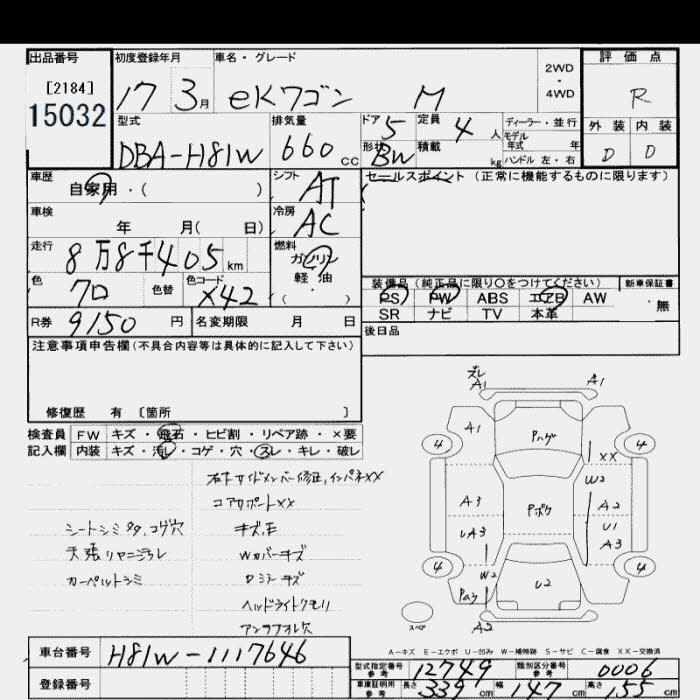 出品番号
[2184]
15032
初度登録年月
17 3月
車名・グレード
eKワゴン M
2WD
・
4WD
評価点
R
外装 内装
D D
型式
DBA-H81W
排気量
660 cc
ドア 5
定員 4 人
形状 BW
積載 kg
ディーラー・並行
モデル
年式 年
ハンドル 左・右
車歴
自家用・( )
シフト
AT
セールスポイント (正常に機能するものに限ります)
車検
年 月( 日)
冷房
AC
走行
8万8千405km
燃料
ガソリン
軽・油
・( )
色
クロ
色替
色コード
X42
装備品 (純正品に限り○をつけてください)
新車保証書
PS PW ABS エアB AW
SR ナビ TV 本革
・無
R券 9150 円
名変期限 月 日
後日品
注意事項申告欄(不具合内容等は具体的に記入して下さい)
修復歴 有 〔箇所 〕
検査員 FW キズ・飛石・ヒビ割・リペア跡・×要
記入欄 内装 キズ・汚レ・コゲ・穴・スレ・キレ・破レ
右サイドメンバー修正,インパネXX
コアサポートXX
シートシミ タタ,コゲ穴
キズ,毛
天張リヤニヨゴレ
Wカバーキズ
カーペットシミ
Dミラーキズ
ヘッドライトクモリ
アンテナオレ穴
ズレ
A1 A1
A1
Pハゲ
4 4
XX
W2
A3
Pボケ
A2
UA3
U1
A3
4 4
W2
U2
スペア
A2
A-キズ E-エクボ U-凹み W-補修跡 S-サビ C-腐食 XX-交換済
車台番号 H81W-1117646
登録番号
型式指定番号
参考
12749
類別区分番号
参考
0006
車庫証明用
参考
長さ 339 cm 幅 147 cm 高さ 155 cm